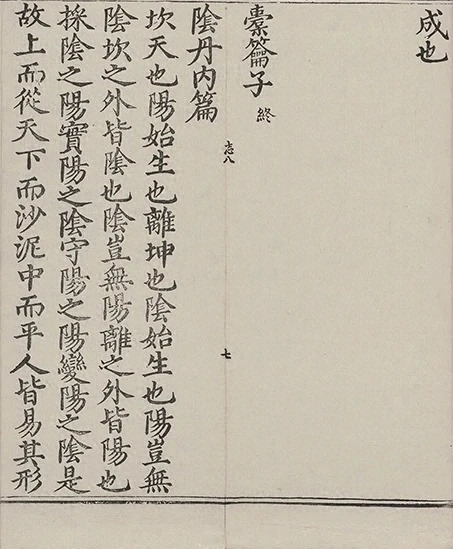 成也
橐籥子 終
志八
七
陰丹内篇
坎天也陽始生也離坤也陰始生也陽豈無
陰坎之外皆陰也陰豈無陽離之外皆陽也
採陰之陽實陽之陰守陽之陽變陽之陰是
故上而從天下而沙泥中而平人皆易其形